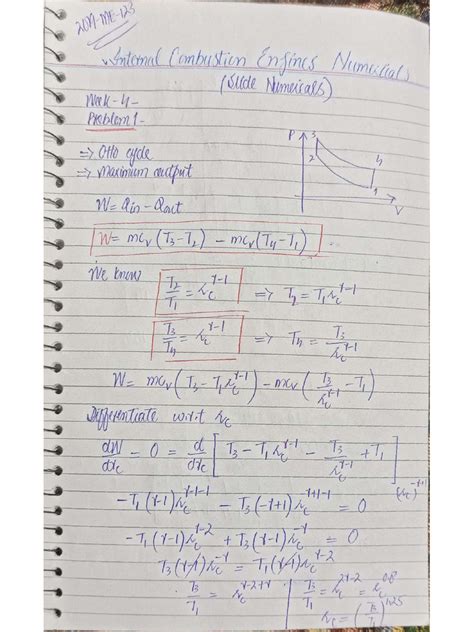 2019-ME-123
Internal Combustion Engines Numericals
(Slide Numericals)
Week-4-
Problem 1-
⇒ Otto cycle
⇒ Maximum output
P 3 2 4 1 V
W = Qin - Qout
W = mcv(T3-T2) - mcv(T4-T1)
We know
T2/T1 = rc^γ-1 ⇒ T2 = T1 rc^γ-1
T3/T4 = rc^γ-1 ⇒ T4 = T3/rc^γ-1
W = mcv(T3 - T1 rc^γ-1) - mcv(T3/rc^γ-1 - T1)
Differentiate w.r.t rc
dW/drc - 0 = d/drc [T3 - T1 rc^γ-1 - T3/rc^γ-1 + T1]
(rc)^-γ+1
-T1(γ-1)rc^γ-1-1 - T3(-γ+1)rc^-γ+1-1 = 0
-T1(γ-1)rc^γ-2 + T3(γ-1)rc^-γ = 0
T3(γ-1)rc^-γ = T1(γ-1)rc^γ-2
T3/T1 = rc^γ-2+γ
T3/T1 = rc^2γ-2 = rc^0.8
rc = (T3/T1)^1.25